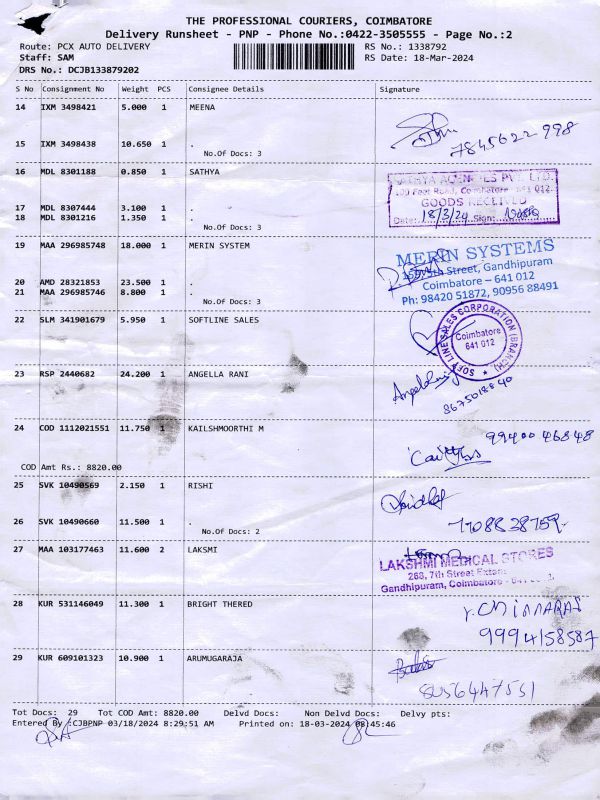 THE PROFESSIONAL COURIERS, COIMBATORE
Delivery Runsheet - PNP - Phone No.:0422-3505555 - Page No.:2
Route: PCX AUTO DELIVERY RS No.: 1338792
Staff: SAM RS Date: 18-Mar-2024
DRS No.: DCJB133879202
S No Consignment No Weight PCS Consignee Details Signature
14 IXM 3498421 5.000 1 MEENA
15 IXM 3498438 10.650 1 . 7845622998
No.Of Docs: 3
16 MDL 8301188 0.850 1 SATHYA
SATHYA AGENCIES PVT. LTD.
100 Feet Road, Coimbatore - 641 012.
GOODS RECEIVED
17 MDL 8307444 3.100 1 .
18 MDL 8301216 1.350 1 . Date: 18/3/24 Sign:
No.Of Docs: 3
19 MAA 296985748 18.000 1 MERIN SYSTEM
MERIN SYSTEMS
Street, Gandhipuram
20 AMD 28321853 23.500 1 . Coimbatore – 641 012
21 MAA 296985746 8.800 1 . Ph: 98420 51872, 90956 88491
No.Of Docs: 3
22 SLM 341901679 5.950 1 SOFTLINE SALES
SOFT LINE SALES CORPORATION (BRANCH)
Coimbatore
641 012
23 RSP 2440682 24.200 1 ANGELLA RANI
24 COD 1112021551 11.750 1 KAILSHMOORTHI M 99400 46848
COD Amt Rs.: 8820.00
25 SVK 10490569 2.150 1 RISHI
26 SVK 10490660 11.500 1 .
No.Of Docs: 2
27 MAA 103177463 11.600 2 LAKSMI
LAKSHMI MEDICAL STORES
268, 7th Street
Gandhipuram, Coimbatore
28 KUR 531146049 11.300 1 BRIGHT THERED
9994158587
29 KUR 609101323 10.900 1 ARUMUGARAJA
8056447551
Tot Docs: 29 Tot COD Amt: 8820.00 Delvd Docs: Non Delvd Docs: Delvy pts:
Entered By :CJBPNP 03/18/2024 8:29:51 AM Printed on: 18-03-2024 08:45:46